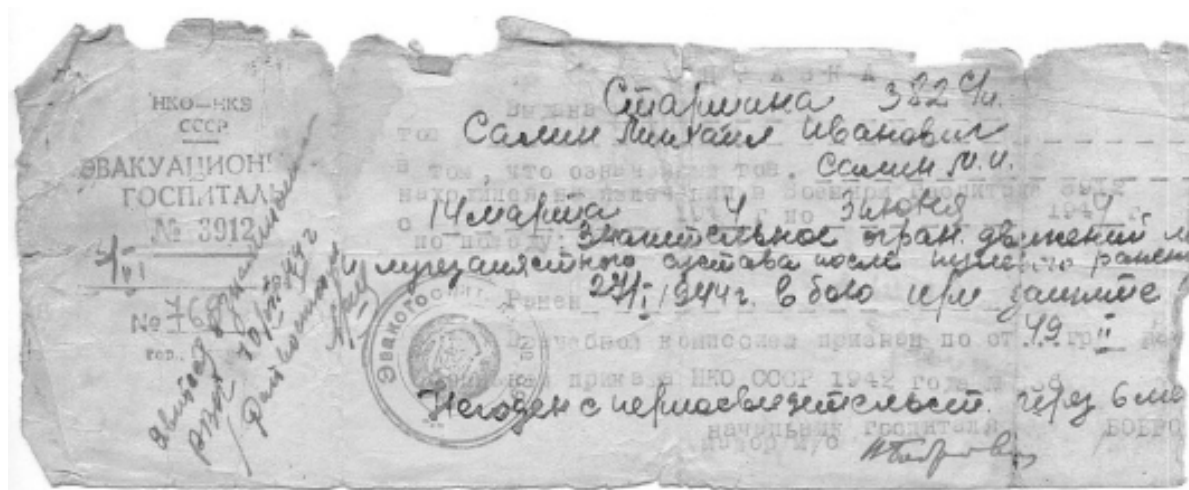 НКО—НКЗ
СССР
ЭВАКУАЦИОН
ГОСПИТАЛЬ
№ 3912
№ 768
гор.
Явиться
РВК 10/VI 44 г
СПРАВКА
Выдана Старшина 382 с/п.
тов Салин Михаил Иванович
в том, что означенный тов. Салин М.И.
находился на излечении в военном госпитале 3912
с 14 марта 1944 г по 3 июня 1944 г.
по поводу: Значительное огран. движений
и лучезапястного сустава после пулевого ранен
Ранен 27/I 1944 г. в бою при защите
Врачебной комиссией признан по ст. 49 гр II
приказа НКО СССР 1942 года № 336
Негоден с переосвидетельст. через 6 ме
начальник госпиталя
майор м/с БОБРО
Эвакогоспит